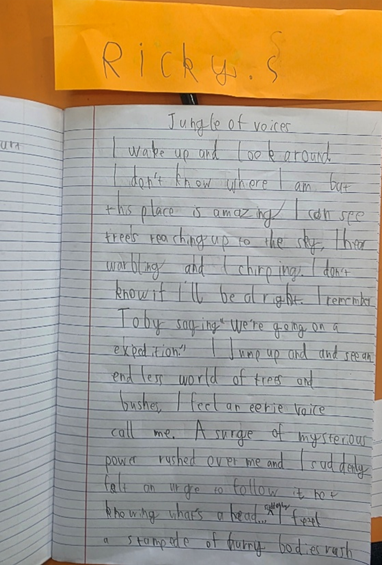 Ricky. S
Jungle of voices
I wake up and look around
I don't know where I am but
this place is amazing I can see
trees reaching up to the sky, I hear
warbling and I chirping, I don't
know if I'll be alright. I remember
Toby saying "We're going on a
expedition" I Jump up and and see an
endless world of trees and
bushes, I feel an eerie voice
call me. A surge of mysterious
power rushed over me and I suddenly
felt an urge to follow it not
knowing what's ahead... I
a stampede of furry bodies rush